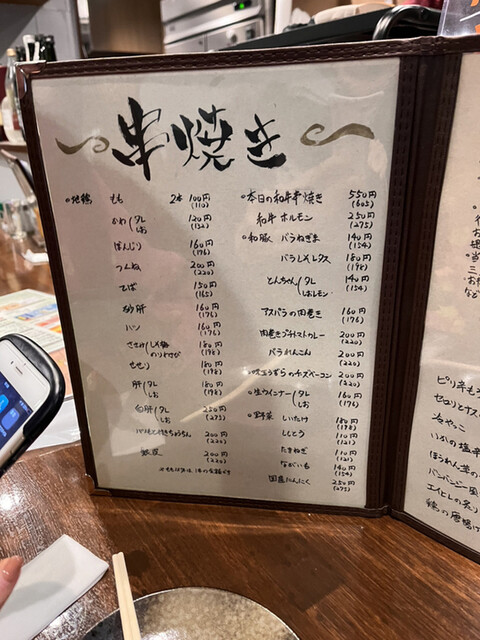 串焼き
○地鶏 もも 2本 100円
(110)
かわ タレ しお 120円
(132)
ぼんじり 160円
(176)
つくね 200円
(220)
てば 150円
(165)
砂肝 160円
(176)
ハツ 160円
(176)
ささみ しそ梅 のりわさび 180円
(198)
せせり 180円
(198)
肝 タレ しお 180円
(198)
白肝 タレ しお 250円
(275)
200円
(220)
銀皮 200円
(220)
○本日の和牛串焼き 550円
(605)
和牛 ホルモン 250円
(275)
○和豚 バラねぎま 140円
(154)
バラしそレタス 180円
(198)
とんちゃん タレ しおレモン 140円
(154)
アスパラの肉巻き 160円
(176)
肉巻きプチトマトカレー 200円
(220)
バラれんこん 200円
(220)
うずらのチーズベーコン 200円
(220)
○生ウインナー タレ しお 160円
(176)
○野菜 しいたけ 180円
(198)
ししとう 110円
(121)
たまねぎ 110円
(121)
ながいも 140円
(154)
国産にんにく 250円
(275)
ピリ辛も
冷やっこ
いかの塩辛
ほうれん草の
バンバンジー風
エイヒレの炙り
鶏の唐揚げ